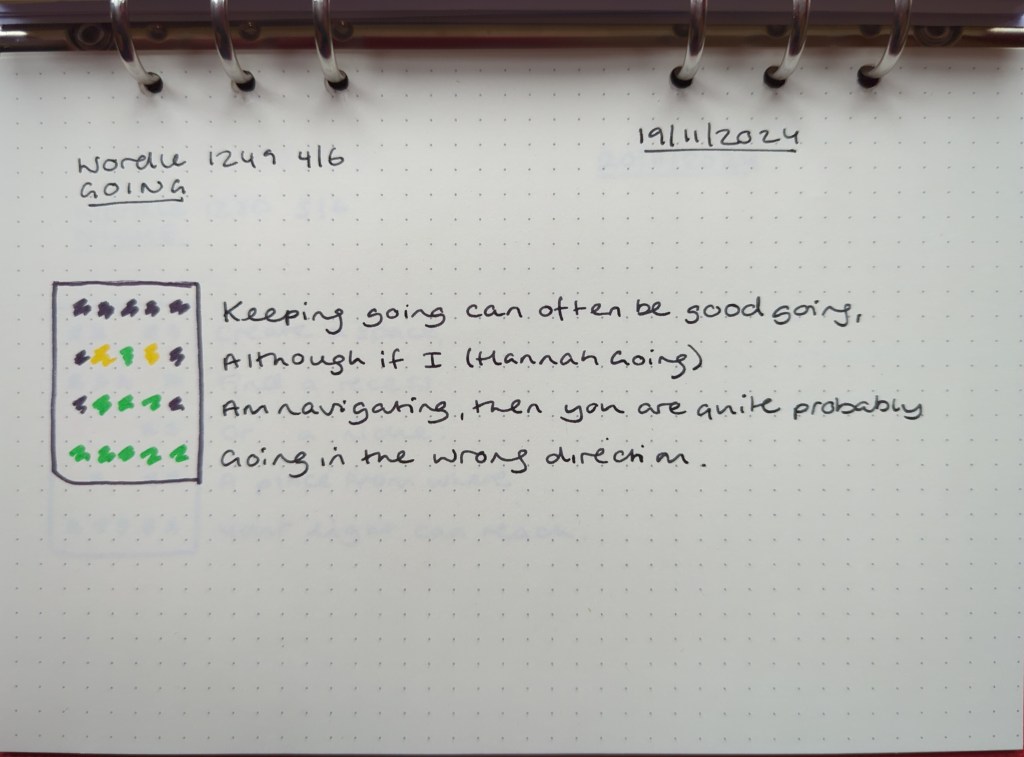 Wordle 1249 4/6
19/11/2024
GOING
Keeping going can often be good going,
Although if I (Hannah Going)
Am navigating, then you are quite probably
Going in the wrong direction.